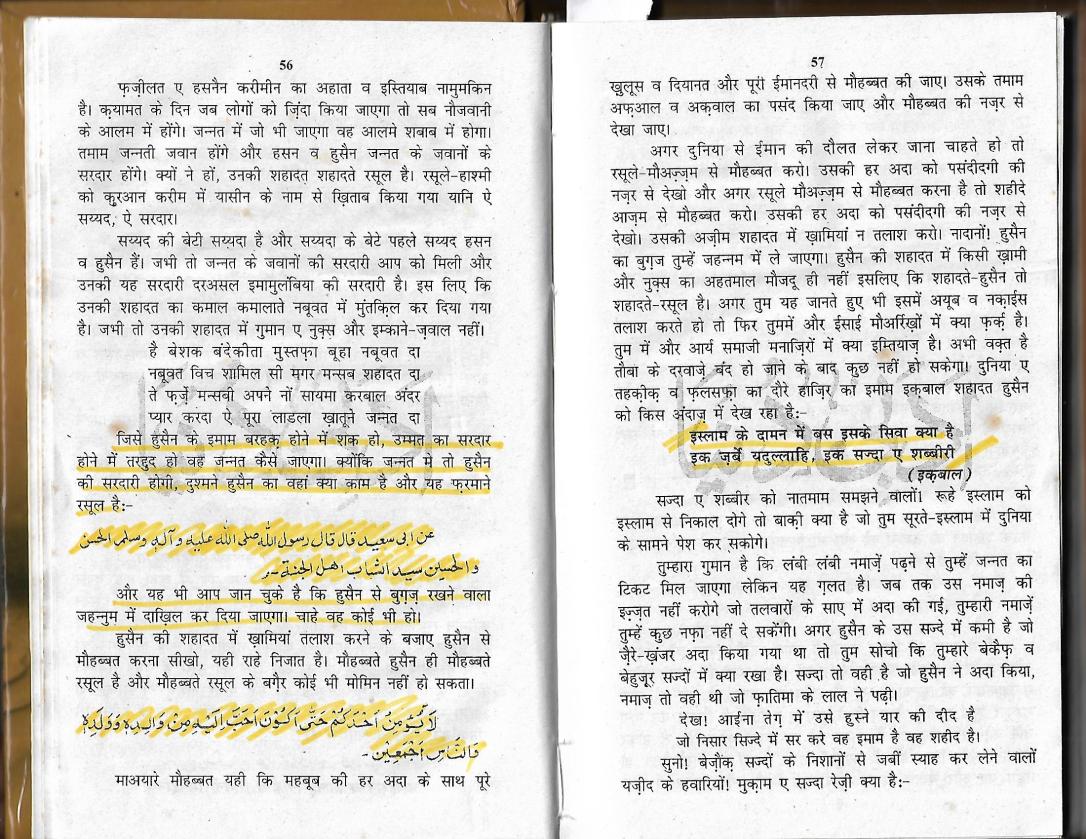 56
फज़ीलत ए हसनैन करीमीन का अहाता व इस्तियाब नामुमकिन
है। क़यामत के दिन जब लोगों को ज़िंदा किया जाएगा तो सब नौजवानी
के आलम में होंगे। जन्नत में जो भी जाएगा वह आलमे शबाब में होगा।
तमाम जन्नती जवान होंगे और हसन व हुसैन जन्नत के जवानों के
सरदार होंगे। क्यों ने हों, उनकी शहादत शहादते रसूल है। रसूले-हाश्मी
को क़ुरआन करीम में यासीन के नाम से ख़िताब किया गया यानि ऐ
सय्यद, ऐ सरदार।
सय्यद की बेटी सय्यदा है और सय्यदा के बेटे पहले सय्यद हसन
व हुसैन हैं। जभी तो जन्नत के जवानों की सरदारी आप को मिली और
उनकी यह सरदारी दरअसल इमामुलंबिया की सरदारी है। इस लिए कि
उनकी शहादत का कमाल कमालाते नबूवत में मुंतक़िल कर दिया गया
है। जभी तो उनकी शहादत में गुमान ए नुक़्स और इम्काने-ज़वाल नहीं।
है बेशक बंदेकीता मुस्तफ़ा बूहा नबूवत दा
नबूवत विच शामिल सी मगर मन्सब शहादत दा
ते फर्ज़े मन्सबी अपने नों सायमा करबाल अंदर
प्यार करदा ऐ पूरा लाडला ख़ातूने जन्नत दा
जिसे हुसैन के इमाम बरहक़ होने में शक हो, उम्मत का सरदार
होने में तरद्दुद हो वह जन्नत कैसे जाएगा। क्योंकि जन्नत मे तो हुसैन
की सरदारी होगी, दुश्मने हुसैन का वहां क्या काम है और यह फ़रमाने
रसूल है:-
عن ابی سعید قال قال رسول اللہ صلی اللہ علیہ و آلہ وسلم الحسن
والحسین سید الشباب اهل الجنة -
और यह भी आप जान चुके है कि हुसैन से बुगज़ रखने वाला
जहन्नुम में दाख़िल कर दिया जाएगा। चाहे वह कोई भी हो।
हुसैन की शहादत में ख़ामियां तलाश करने के बजाए हुसैन से
मौहब्बत करना सीखो, यही राहे निजात है। मौहब्बते हुसैन ही मौहब्बते
रसूल है और मौहब्बते रसूल के बग़ैर कोई भी मोमिन नहीं हो सकता।
لَا يُؤْمِنُ اَحَدُكُمْ حَتّٰى اَكُوْنَ اَحَبَّ اِلَيْهِ مِنْ وَالِدِهٖ وَوَلَدِهٖ
وَالنَّاسِ اَجْمَعِيْنَ -
माअयारे मौहब्बत यही कि महबूब की हर अदा के साथ पूरे
57
ख़ुलूस व दियानत और पूरी ईमानदरी से मौहब्बत की जाए। उसके तमाम
अफ़आल व अक़वाल का पसंद किया जाए और मौहब्बत की नज़र से
देखा जाए।
अगर दुनिया से ईमान की दौलत लेकर जाना चाहते हो तो
रसूले-मौअज़्ज़म से मौहब्बत करो। उसकी हर अदा को पसंदीदगी की
नज़र से देखो और अगर रसूले मौअज़्ज़म से मौहब्बत करना है तो शहीदे
आज़म से मौहब्बत करो। उसकी हर अदा को पसंदीदगी की नज़र से
देखो। उसकी अज़ीम शहादत में ख़ामियां न तलाश करो। नादानों! हुसैन
का बुगज़ तुम्हें जहन्नम में ले जाएगा। हुसैन की शहादत में किसी ख़ामी
और नुक़्स का अहतमाल मौजूद ही नहीं इसलिए कि शहादते-हुसैन तो
शहादते-रसूल है। अगर तुम यह जानते हुए भी इसमें अयूब व नक़ाईस
तलाश करते हो तो फिर तुममें और ईसाई मौअर्रिख़ों में क्या फ़र्क़ है।
तुम में और आर्य समाजी मनाज़िरों में क्या इम्तियाज़ है। अभी वक़्त है
तौबा के दरवाज़े बंद हो जाने के बाद कुछ नहीं हो सकेगा। दुनिया ए
तहक़ीक़ व फ़लसफ़ा का दौरे हाज़िर का इमाम इक़बाल शहादत हुसैन
को किस अंदाज़ में देख रहा है:-
इस्लाम के दामन में बस इसके सिवा क्या है
इक ज़र्बे यदुल्लाहि, इक सज्दा ए शब्बीरी
(इक़बाल)
सज्दा ए शब्बीर को नातमाम समझने वालों। रूहे इस्लाम को
इस्लाम से निकाल दोगे तो बाक़ी क्या है जो तुम सूरते-इस्लाम में दुनिया
के सामने पेश कर सकोगे।
तुम्हारा गुमान है कि लंबी लंबी नमाज़ें पढ़ने से तुम्हें जन्नत का
टिकट मिल जाएगा लेकिन यह ग़लत है। जब तक उस नमाज़ की
इज़्ज़त नहीं करोगे जो तलवारों के साए में अदा की गई, तुम्हारी नमाज़ें
तुम्हें कुछ नफ़ा नहीं दे सकेंगी। अगर हुसैन के उस सज्दे में कमी है जो
ज़ैरे-ख़ंजर अदा किया गया था तो तुम सोचो कि तुम्हारे बेकैफ़ व
बेहुज़ूर सज्दों में क्या रखा है। सज्दा तो वही है जो हुसैन ने अदा किया,
नमाज़ तो वही थी जो फ़ातिमा के लाल ने पढ़ी।
देख! आईना तेग़ में उसे हुस्ने यार की दीद है
जो निसार सिज्दे में सर करे वह इमाम है वह शहीद है।
सुनो! बेज़ौक़ सज्दों के निशानों से जबीं स्याह कर लेने वालों
यज़ीद के हवारियों! मुक़ाम ए सज्दा रेज़ी क्या है:-